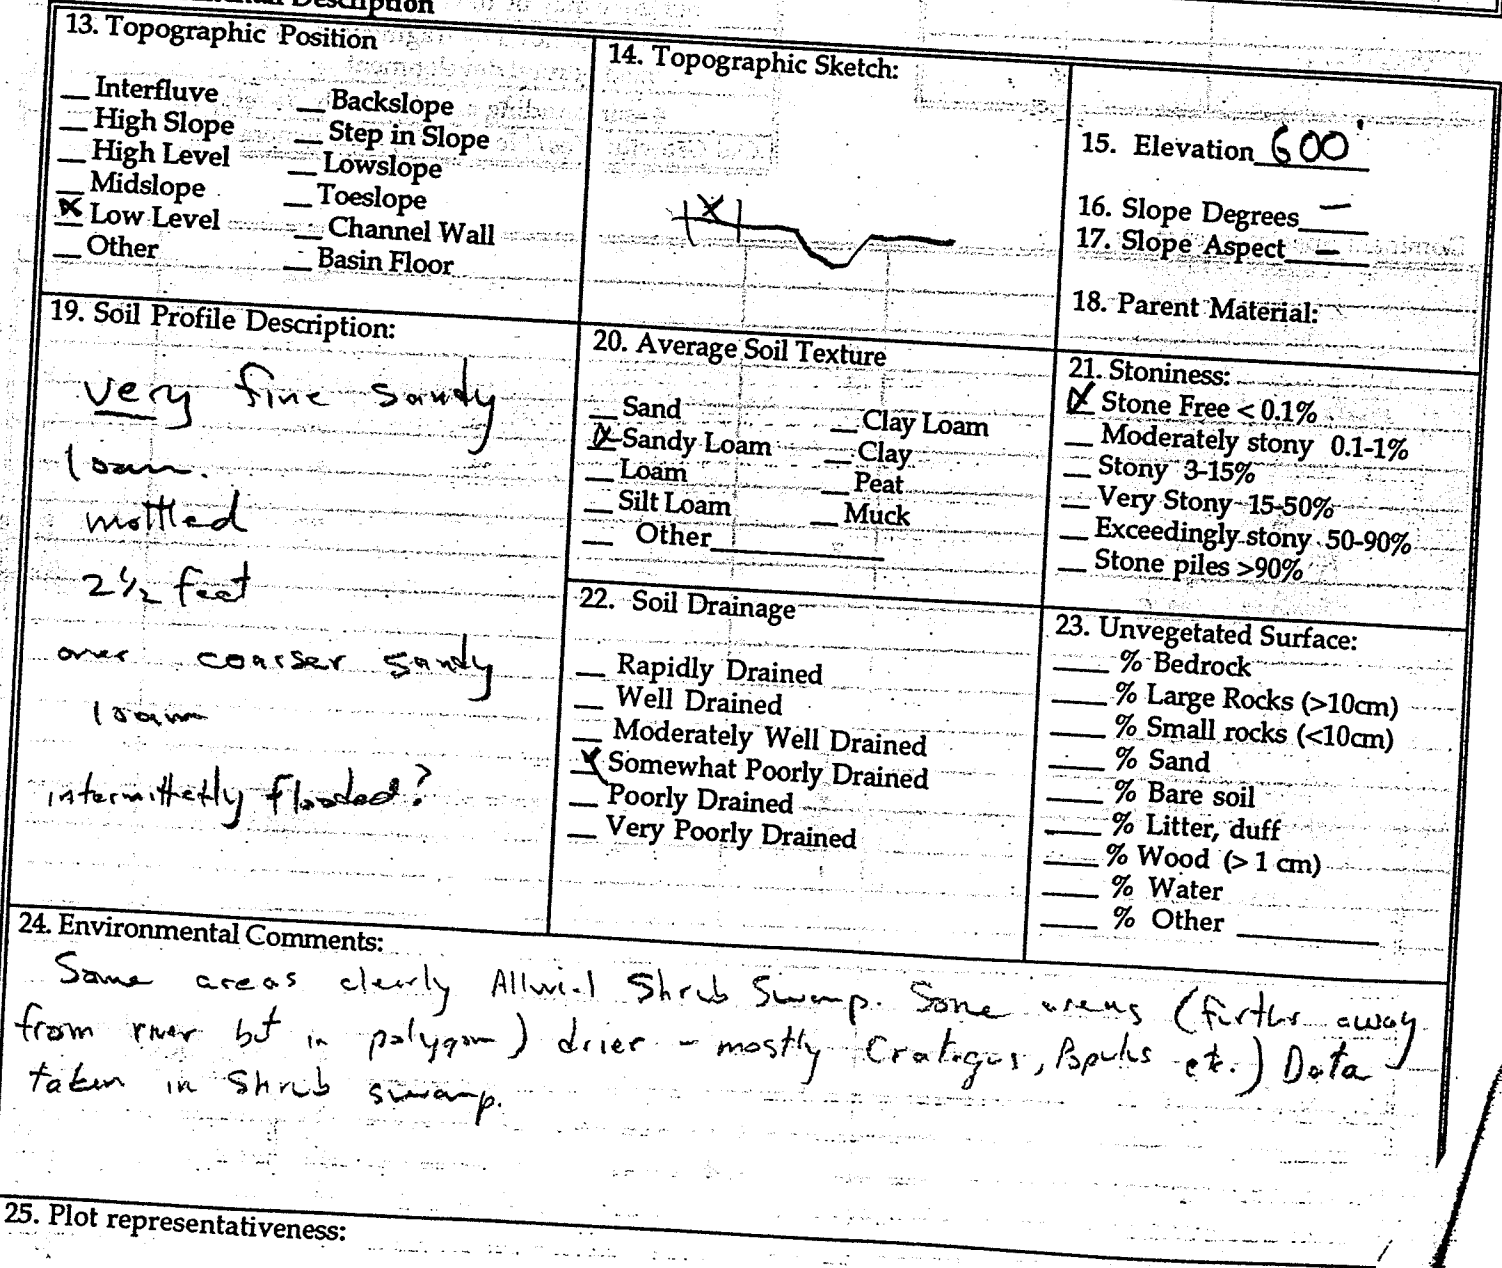 Description
13. Topographic Position
__ Interfluve __ Backslope
__ High Slope __ Step in Slope
__ High Level __ Lowslope
__ Midslope __ Toeslope
X Low Level __ Channel Wall
__ Other __ Basin Floor
14. Topographic Sketch:
X
15. Elevation 600'
16. Slope Degrees —
17. Slope Aspect —
18. Parent Material:
19. Soil Profile Description:
very fine sandy
loam.
mottled
2½ feet
over coarser sandy
loam
intermittetly flooded?
20. Average Soil Texture
__ Sand __ Clay Loam
X Sandy Loam __ Clay
__ Loam __ Peat
__ Silt Loam __ Muck
__ Other__________
21. Stoniness:
X Stone Free < 0.1%
__ Moderately stony 0.1-1%
__ Stony 3-15%
__ Very Stony 15-50%
__ Exceedingly stony 50-90%
__ Stone piles >90%
22. Soil Drainage
__ Rapidly Drained
__ Well Drained
__ Moderately Well Drained
X Somewhat Poorly Drained
__ Poorly Drained
__ Very Poorly Drained
23. Unvegetated Surface:
___ % Bedrock
___ % Large Rocks (>10cm)
___ % Small rocks (<10cm)
___ % Sand
___ % Bare soil
___ % Litter, duff
___ % Wood (> 1 cm)
___ % Water
___ % Other ________
24. Environmental Comments:
Some areas clearly Alluvial Shrub Swamp. Some areas (further away
from river but in polygon) drier - mostly Crategus, Populus etc.) Data
taken in shrub swamp.
25. Plot representativeness: